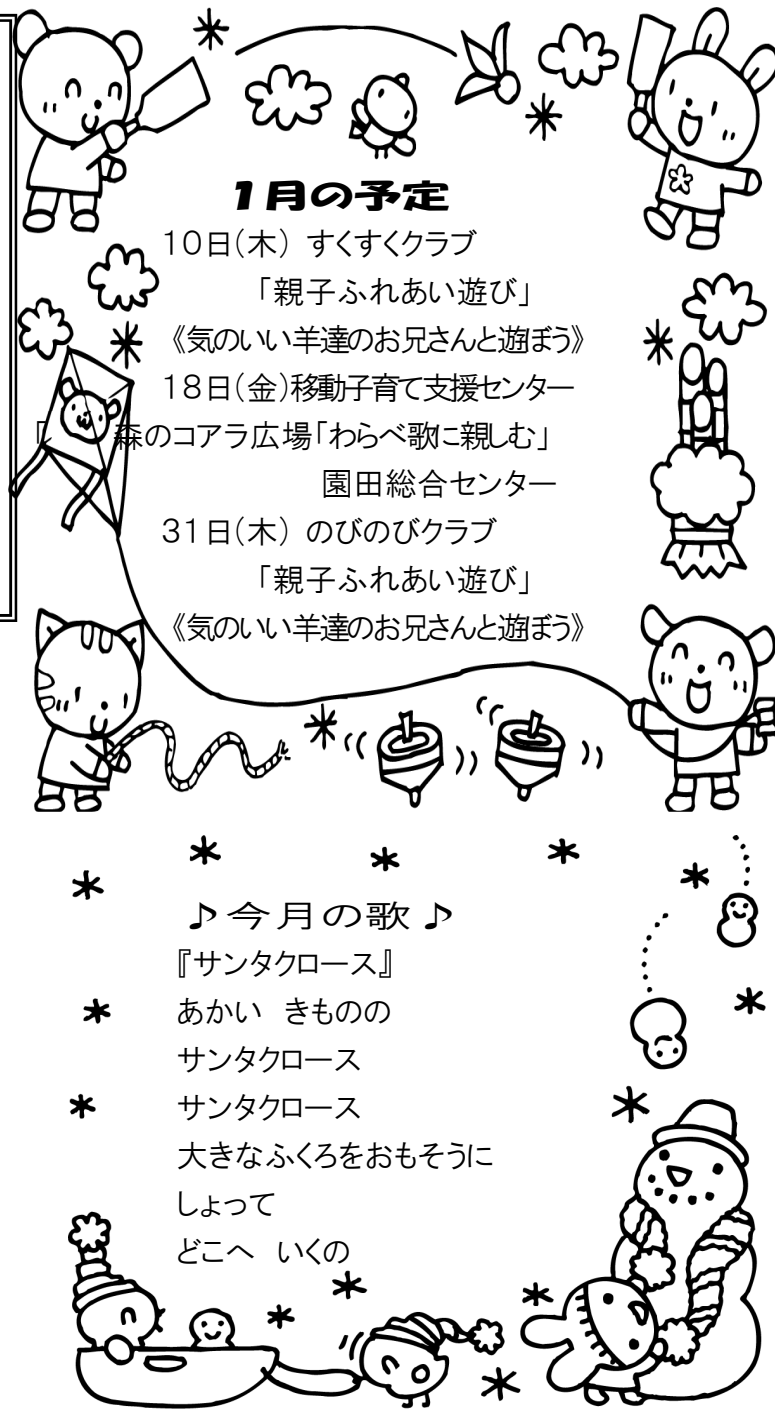 1月の予定
10日(木) すくすくクラブ
「親子ふれあい遊び」
《気のいい羊達のお兄さんと遊ぼう》
18日(金)移動子育て支援センター
「 森のコアラ広場「わらべ歌に親しむ」
園田総合センター
31日(木) のびのびクラブ
「親子ふれあい遊び」
《気のいい羊達のお兄さんと遊ぼう》
♪今月の歌♪
『サンタクロース』
あかい きものの
サンタクロース
サンタクロース
大きなふくろをおもそうに
しょって
どこへ いくの